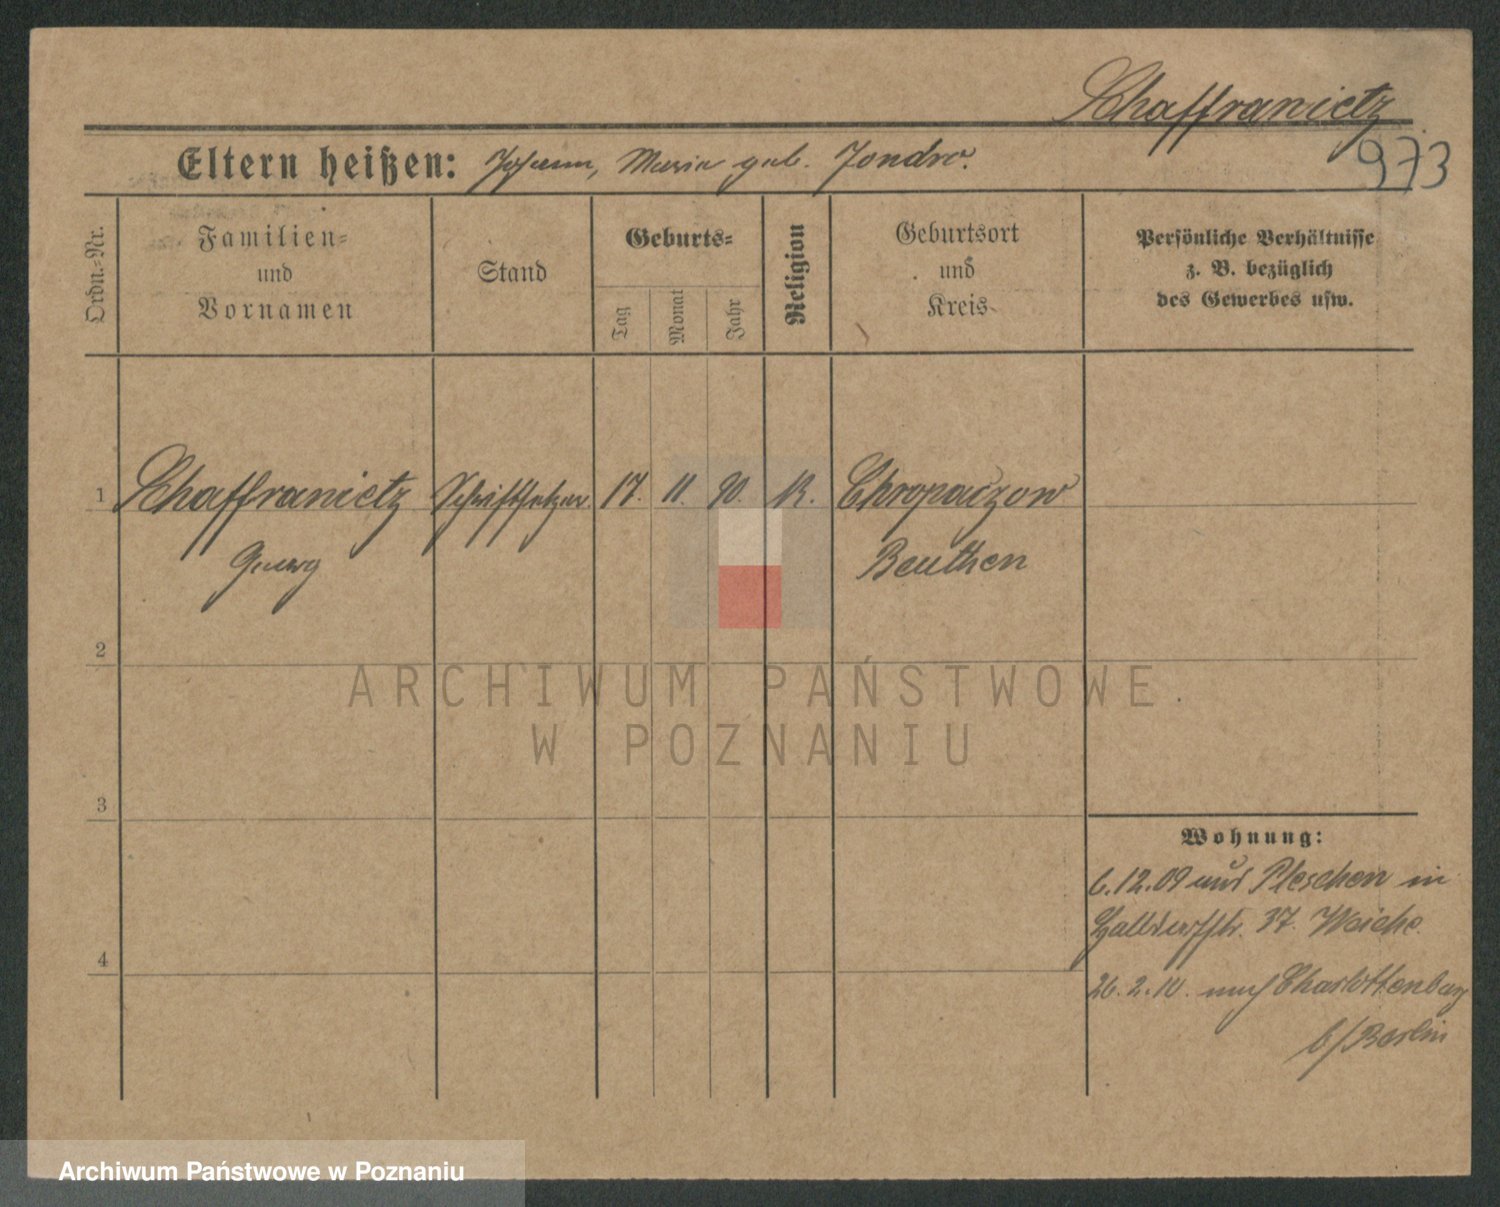 Schaffranietz
973
Eltern heißen: Johann, Maria geb. Jondro.
Ordn.-Nr.
Familien-
und
Vornamen
Stand
Geburts-
Tag
Monat
Jahr
Religion
Geburtsort
und
Kreis
Persönliche Verhältnisse
z. B. bezüglich
des Gewerbes usw.
1 Schaffranietz Schriftsetzer 17. 11. 90. K. Chropaczow
Georg Beuthen
2
3
4
Wohnung:
6.12.09 aus Pleschen in
37.
26.2.10. nach Charlottenburg
b/Berlin
ARCHIWUM PAŃSTWOWE
W POZNANIU
Archiwum Państwowe w Poznaniu